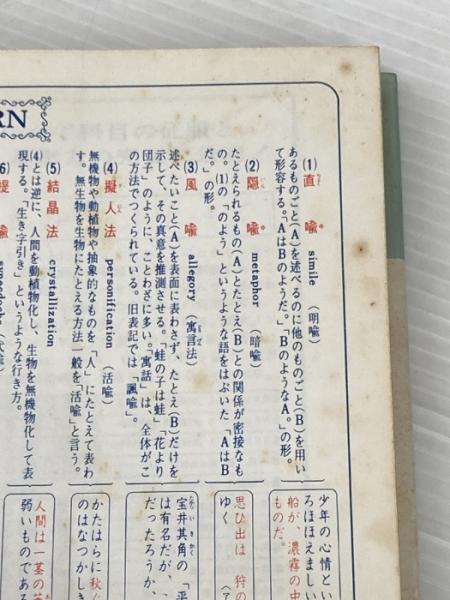 RN
(1) 直喩 simile (明喩)
あるものごと(A)を述べるのに他のものごと(B)を用い
て形容する。「AはBのようだ。」「BのようなA。」の形。
(2) 隠喩 metaphor (暗喩)
たとえられるもの(A)とたとえ(B)との関係が密接なも
の。(1)の「のよう」というような語をはぶいた「AはB
だ。」の形。
(3) 風喩 allegory (寓言法)
述べたいこと(A)を表面に表わさず、たとえ(B)だけを
示して、その真意を推測させる。「蛙の子は蛙」「花より
団子」のように、ことわざに多い。「寓話」は、全体がこ
の方法でつくられている。旧表記では「諷喩」。
(4) 擬人法 personification (活喩)
無機物や動植物や抽象的なものを「人」にたとえて表わ
す。無生物を生物にたとえる方法一般を「活喩」と言う。
(5) 結晶法 crystallization
(4)とは逆に、人間を動植物化し、生物を無機物化して表
現する。「生き字引き」というような行き方。
(6) 提喩 synecdoche
少年の心情とい
ろほほえましい
船が、濃霧の中
ものだ。
思ひ出は 狩の
ゆく
宝井其角の「平
は有名だが、
だったろうか、
かたはらに秋
のはなつかしき
人間は一茎の
弱いものである